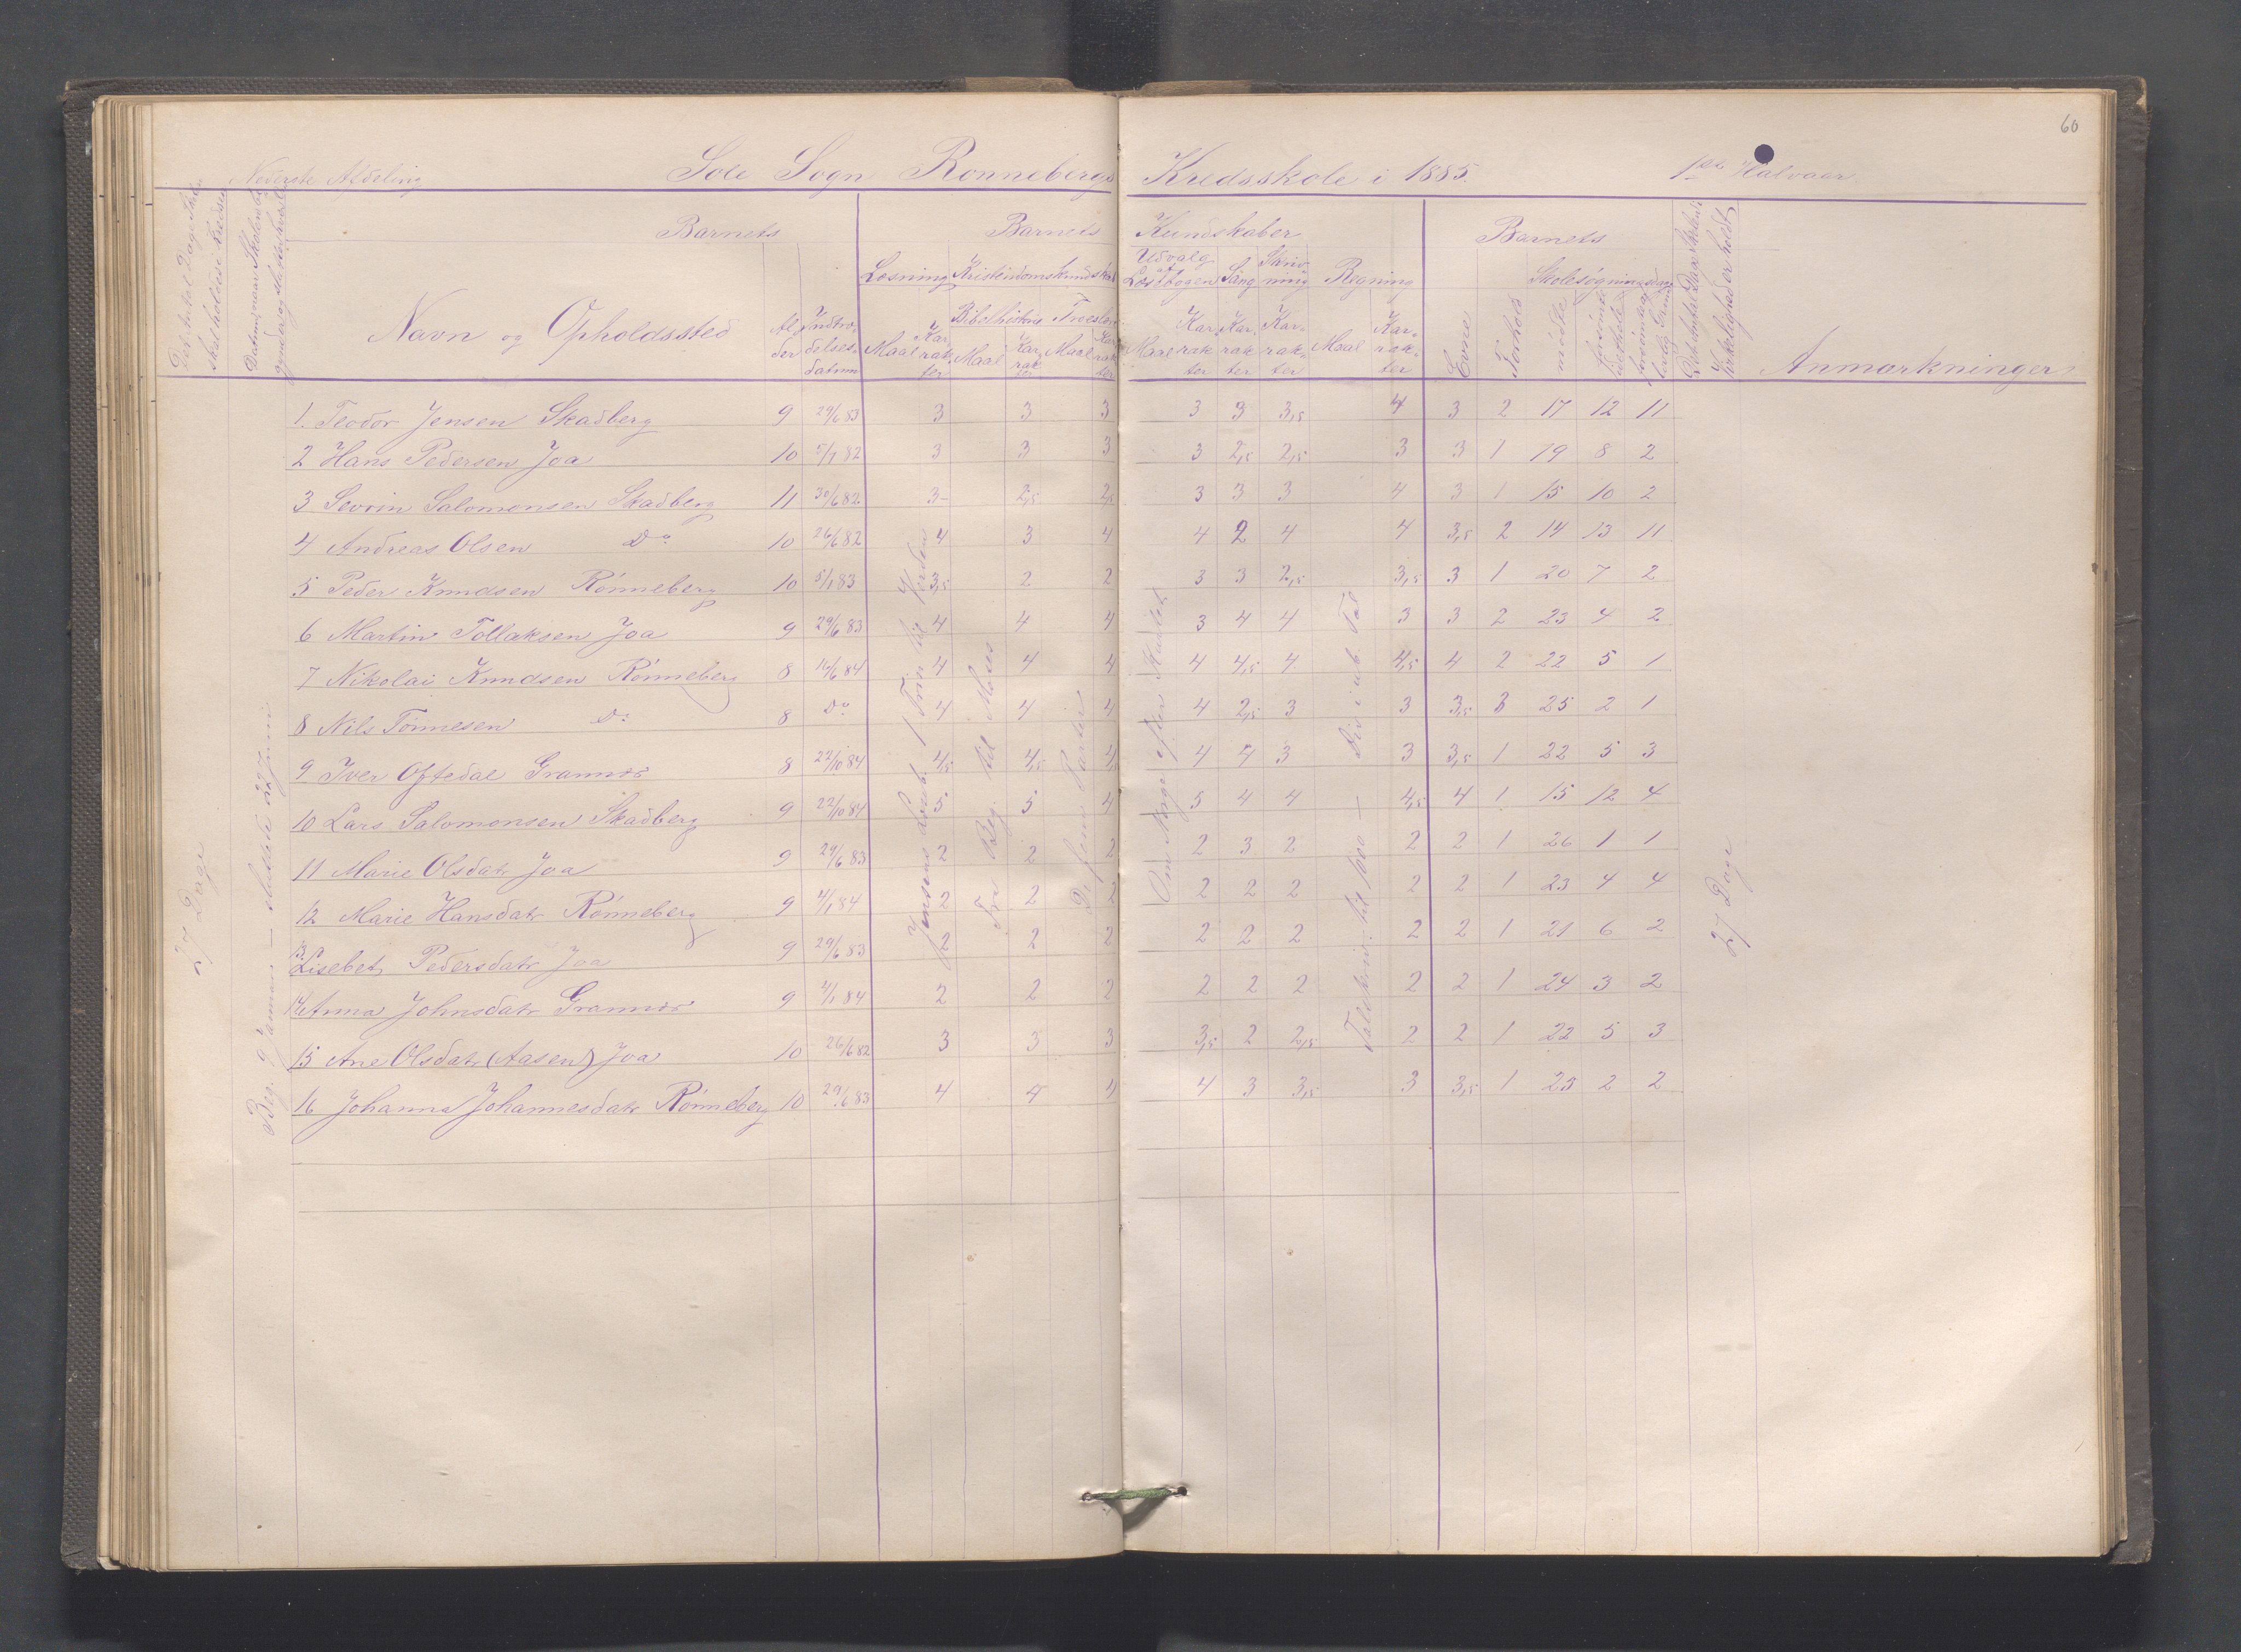 60
Nederste Afdeling
Sole Sogn Rønnebergs Kredsskole i 1885. 1ste Halvaar.
Barnets Barnets Kundskaber Barnets
Navn og Opholdssted
Alder Indtrædelsesdatum
Læsning Kristendomskundskab
Bibelhistorie Troeslære
Maal Karakter Maal Karakter Maal Karakter
Udvalg af Læsebogen Sang Skrivning Regning
Maal Karakter Karakter Karakter Maal Karakter
Evne Forhold Skolesøgningsdage
mødte
Anmærkninger
1. Teodor Jensen Skadberg 9 29/6 83 3 3 3 3 3 3,5 4 3 2 17 12 11
2 Hans Pedersen Joa 10 5/1 82 3 3 3 3 2,5 2,5 3 3 1 19 8 2
3 Sevrin Salomonsen Skadberg 11 30/6 82 3 2,5 2,5 3 3 3 4 3 1 15 10 2
4 Andreas Olsen Do 10 26/6 82 4 3 4 4 2 4 4 3,5 2 14 13 11
5 Peder Knudsen Rønneberg 10 5/1 83 3,5 2 2 3 3 2,5 3,5 3 1 20 7 2
6 Martin Tollaksen Joa 9 29/6 83 4 4 4 3 4 4 3 3 2 23 4 2
7 Nikolai Knudsen Rønneberg 8 16/6 84 4 4 4 4 4,5 4 4,5 4 2 22 5 1
8 Nils Tønnesen Do 8 Do 4 4 4 4 2,5 3 3 3,5 3 25 2 1
9 Iver Oftedal Grannes 8 22/10 84 4,5 4,5 4,5 4 4 3 3 3,5 1 22 5 3
10 Lars Salomonsen Skadberg 9 22/10 84 5 5 4 5 4 4 4,5 4 1 15 12 4
11 Marie Olsdatr Joa 9 29/6 83 2 2 2 2 3 2 2 2 1 26 1 1
12 Marie Hansdatr Rønneberg 9 4/1 84 2 2 2 2 2 2 2 2 1 23 4 4
13 Lisebet Pedersdatr Joa 9 29/6 83 2 2 2 2 2 2 2 2 1 21 6 2
14 Anna Johnsdatr Grannes 9 4/1 84 2 2 2 2 2 2 2 2 1 24 3 2
15 Ane Olsdatr (Aasen) Joa 10 26/6 82 3 3 3 3,5 2 2,5 2 2 1 22 5 3
16 Johanna Johannesdatr Rønneberg 10 29/6 83 4 4 4 4 3 3,5 3 3,5 1 23 2 2
27 Dage
Beg. 9 Januar — sluttede 27 Juni
til Moses
De fem Parter
Om Norge efter Kartet
27 Dage